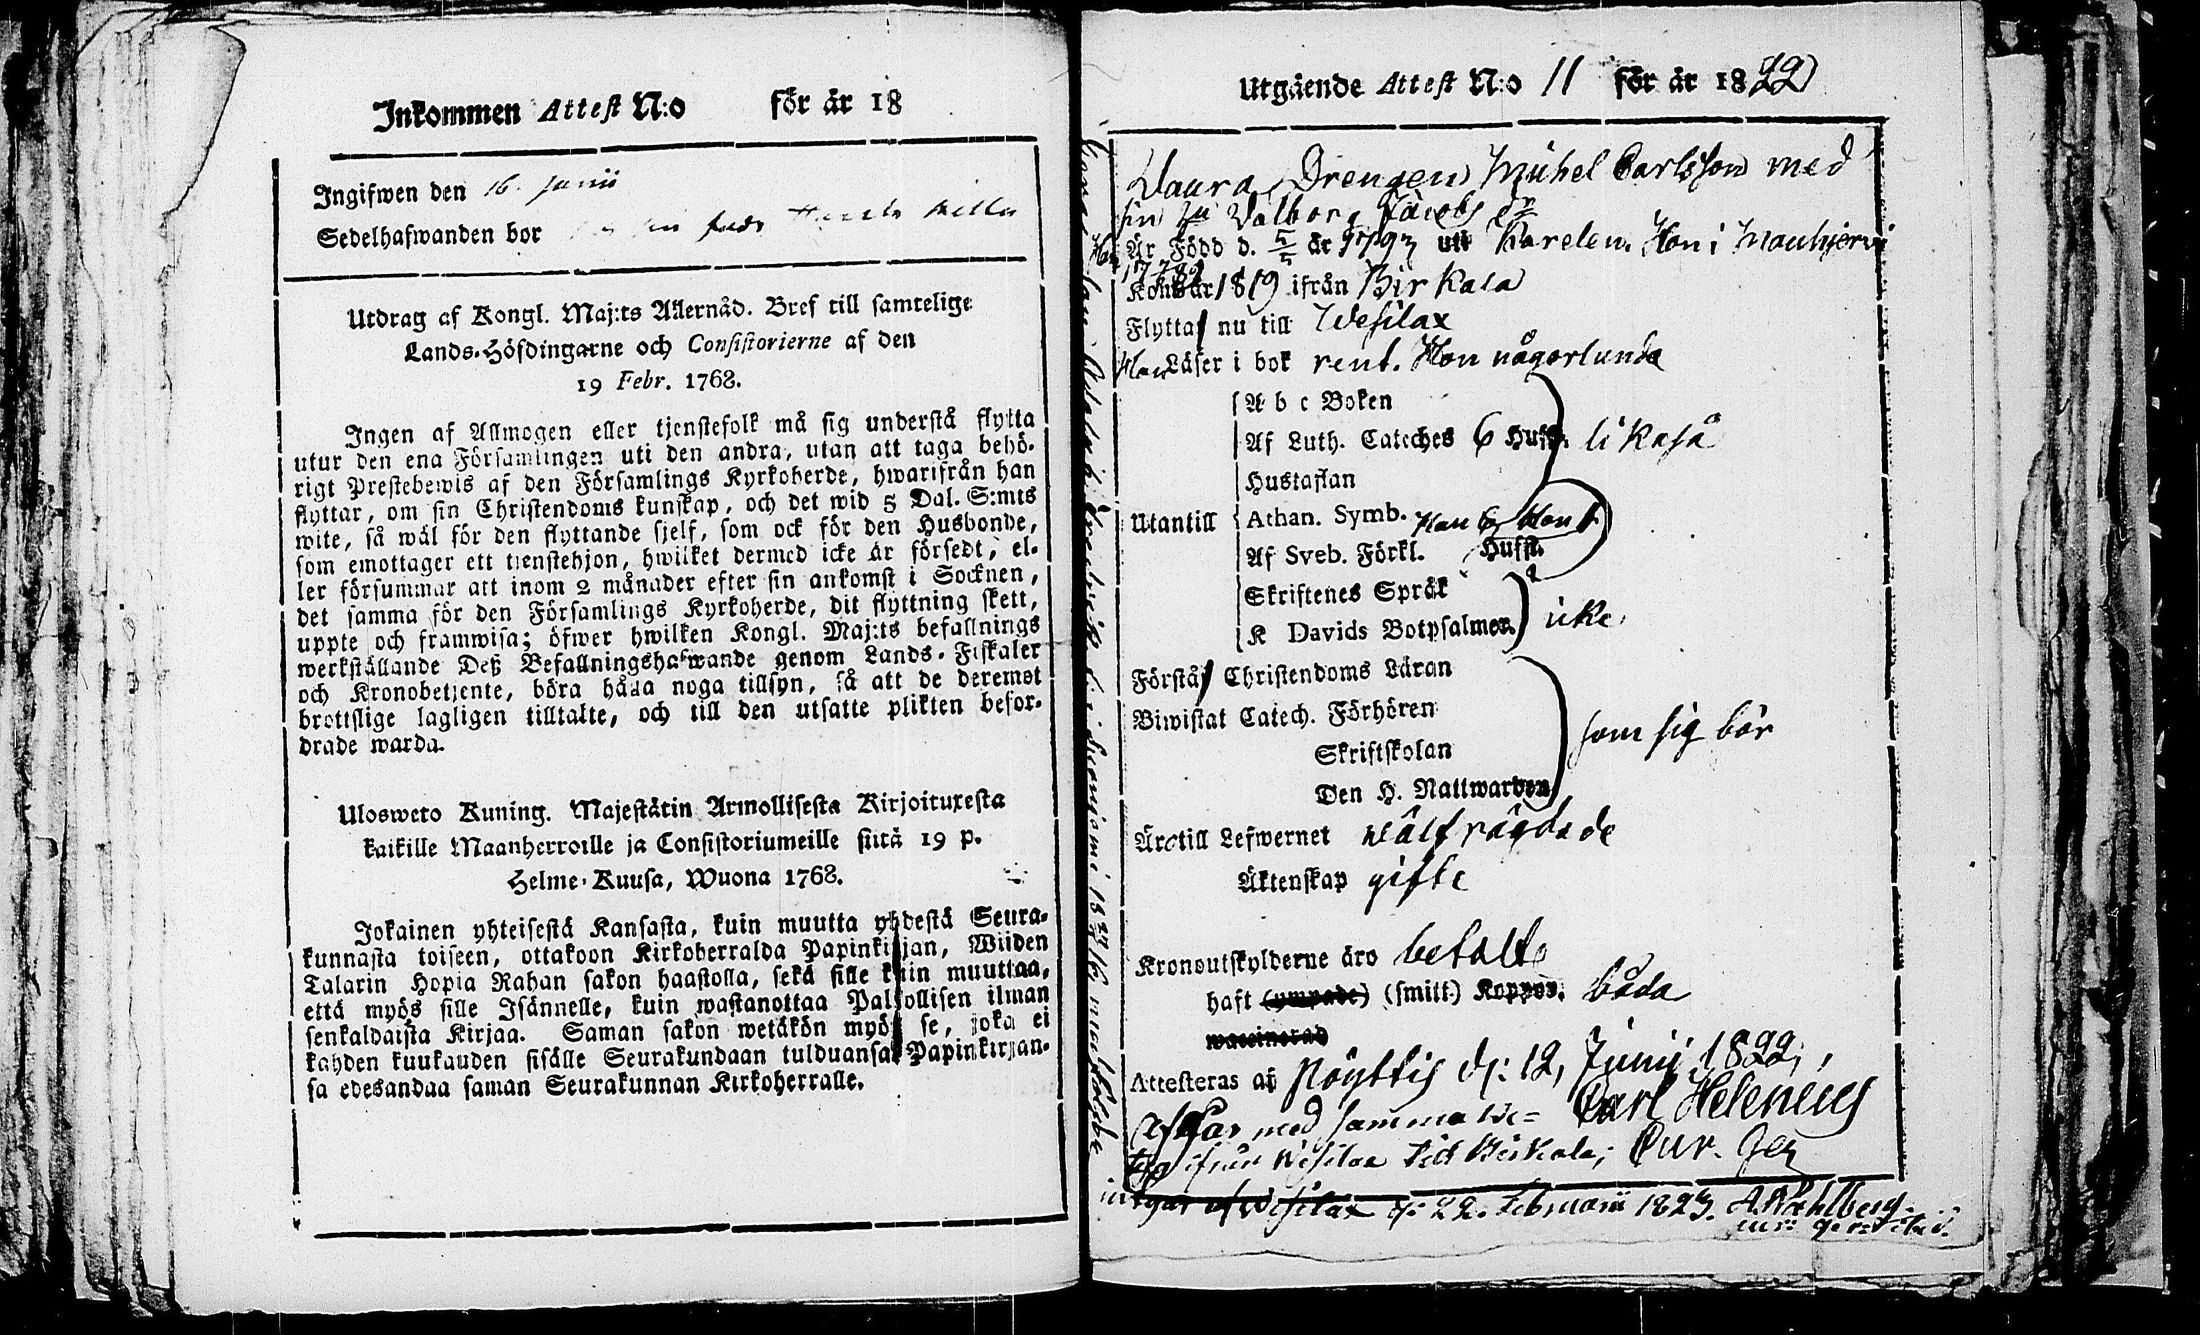 Inkommen Attest N:o för år 18
Ingifwen den 16. Junii
Sedelhafwanden bor
Utdrag af Kongl. Maj:ts Allernåd. Bref till samtelige
Lands-Höfdingarne och Consistorierne af den
19 Febr. 1768.
Ingen af Allmogen eller tjenstefolk må sig understå flytta
utur den ena Församlingen uti den andra, utan att taga behö-
rigt Prestebewis af den Församlings Kyrkoherde, hwarifrån han
flyttar, om sin Christendoms kunskap, och det wid 5 Dal. S:mts
wite, så wäl för den flyttande sjelf, som ock för den Husbonde,
som emottager ett tjenstehjon, hwilket dermed icke är försedt, el-
ler försummar att inom 2 månader efter sin ankomst i Socknen,
det samma för den Församlings Kyrkoherde, dit flyttning skett,
uppte och framwisa; öfwer hwilken Kongl. Maj:ts befallnings
werkställande Deß Befallningshafwande genom Lands-Fiskaler
och Kronobetjente, böra hålla noga tillsyn, så att de deremot
brottslige lagligen tilltalte, och till den utsatte plikten befor-
drade warda.
Ulosweto Kuning. Majestätin Armollisesta Kirjoituxesta
kaikille Maanherroille ja Consistoriumeille siitä 19 p.
Helme-Kuusa, Wuona 1768.
Jokainen yhteisestä Kansasta, kuin muutta yhdestä Seura-
kunnasta toiseen, ottakoon Kirkoherralda Papinkirjan, Wiiden
Talarin Hopia Rahan sakon haastolla, sekä sille kuin muuttaa,
että myös sille Isännelle, kuin wastanottaa Palkollisen ilman
senkaldaista Kirjaa. Saman sakon wetäkön myös se, joka ei
kahden kuukauden sisälle Seurakundaan tulduansa Papinkirjan-
sa edesandaa saman Seurakunnan Kirkoherralle.
Utgående Attest N:o 11 för år 1822
Drengen Michel Carlsson med
sin Valborg Jacobs
Han Är Född d. 5/5 år 1793 uti Karelen. Hon i Mouhijervi
Kom år 1819 ifrån Birkala
Flytta nu till Wesilax
Han Läser i bok rent. Hon någorlunda
A b c Boken
Af Luth. Cateches 6 Hufst. likaså
Hustaflan
Utantill Athan. Symb. Han 6 Hon
Af Sveb. Förkl. Hufst.
Skriftenes Språk
K Davids Botpsalmer. icke
Förstår Christendoms Läran
Biwistat Catech. Förhören
Skriftskolan som sig bör
Den H. Nattwarden
Äro till Lefwernet wälfrägdade
Äktenskap gifte
Kronoutskylderne äro betalte
haft (ympade) (smitt.) Koppor. båda
waccinerad
Attesteras af Pöyttis d: 12, Junii 1822,
med samma be- Carl Helenius
tyg ifrån Wesilax till Birkala; Cur. Ger
Wesilax d: 22. Februarii 1823. A. Wahlberg.